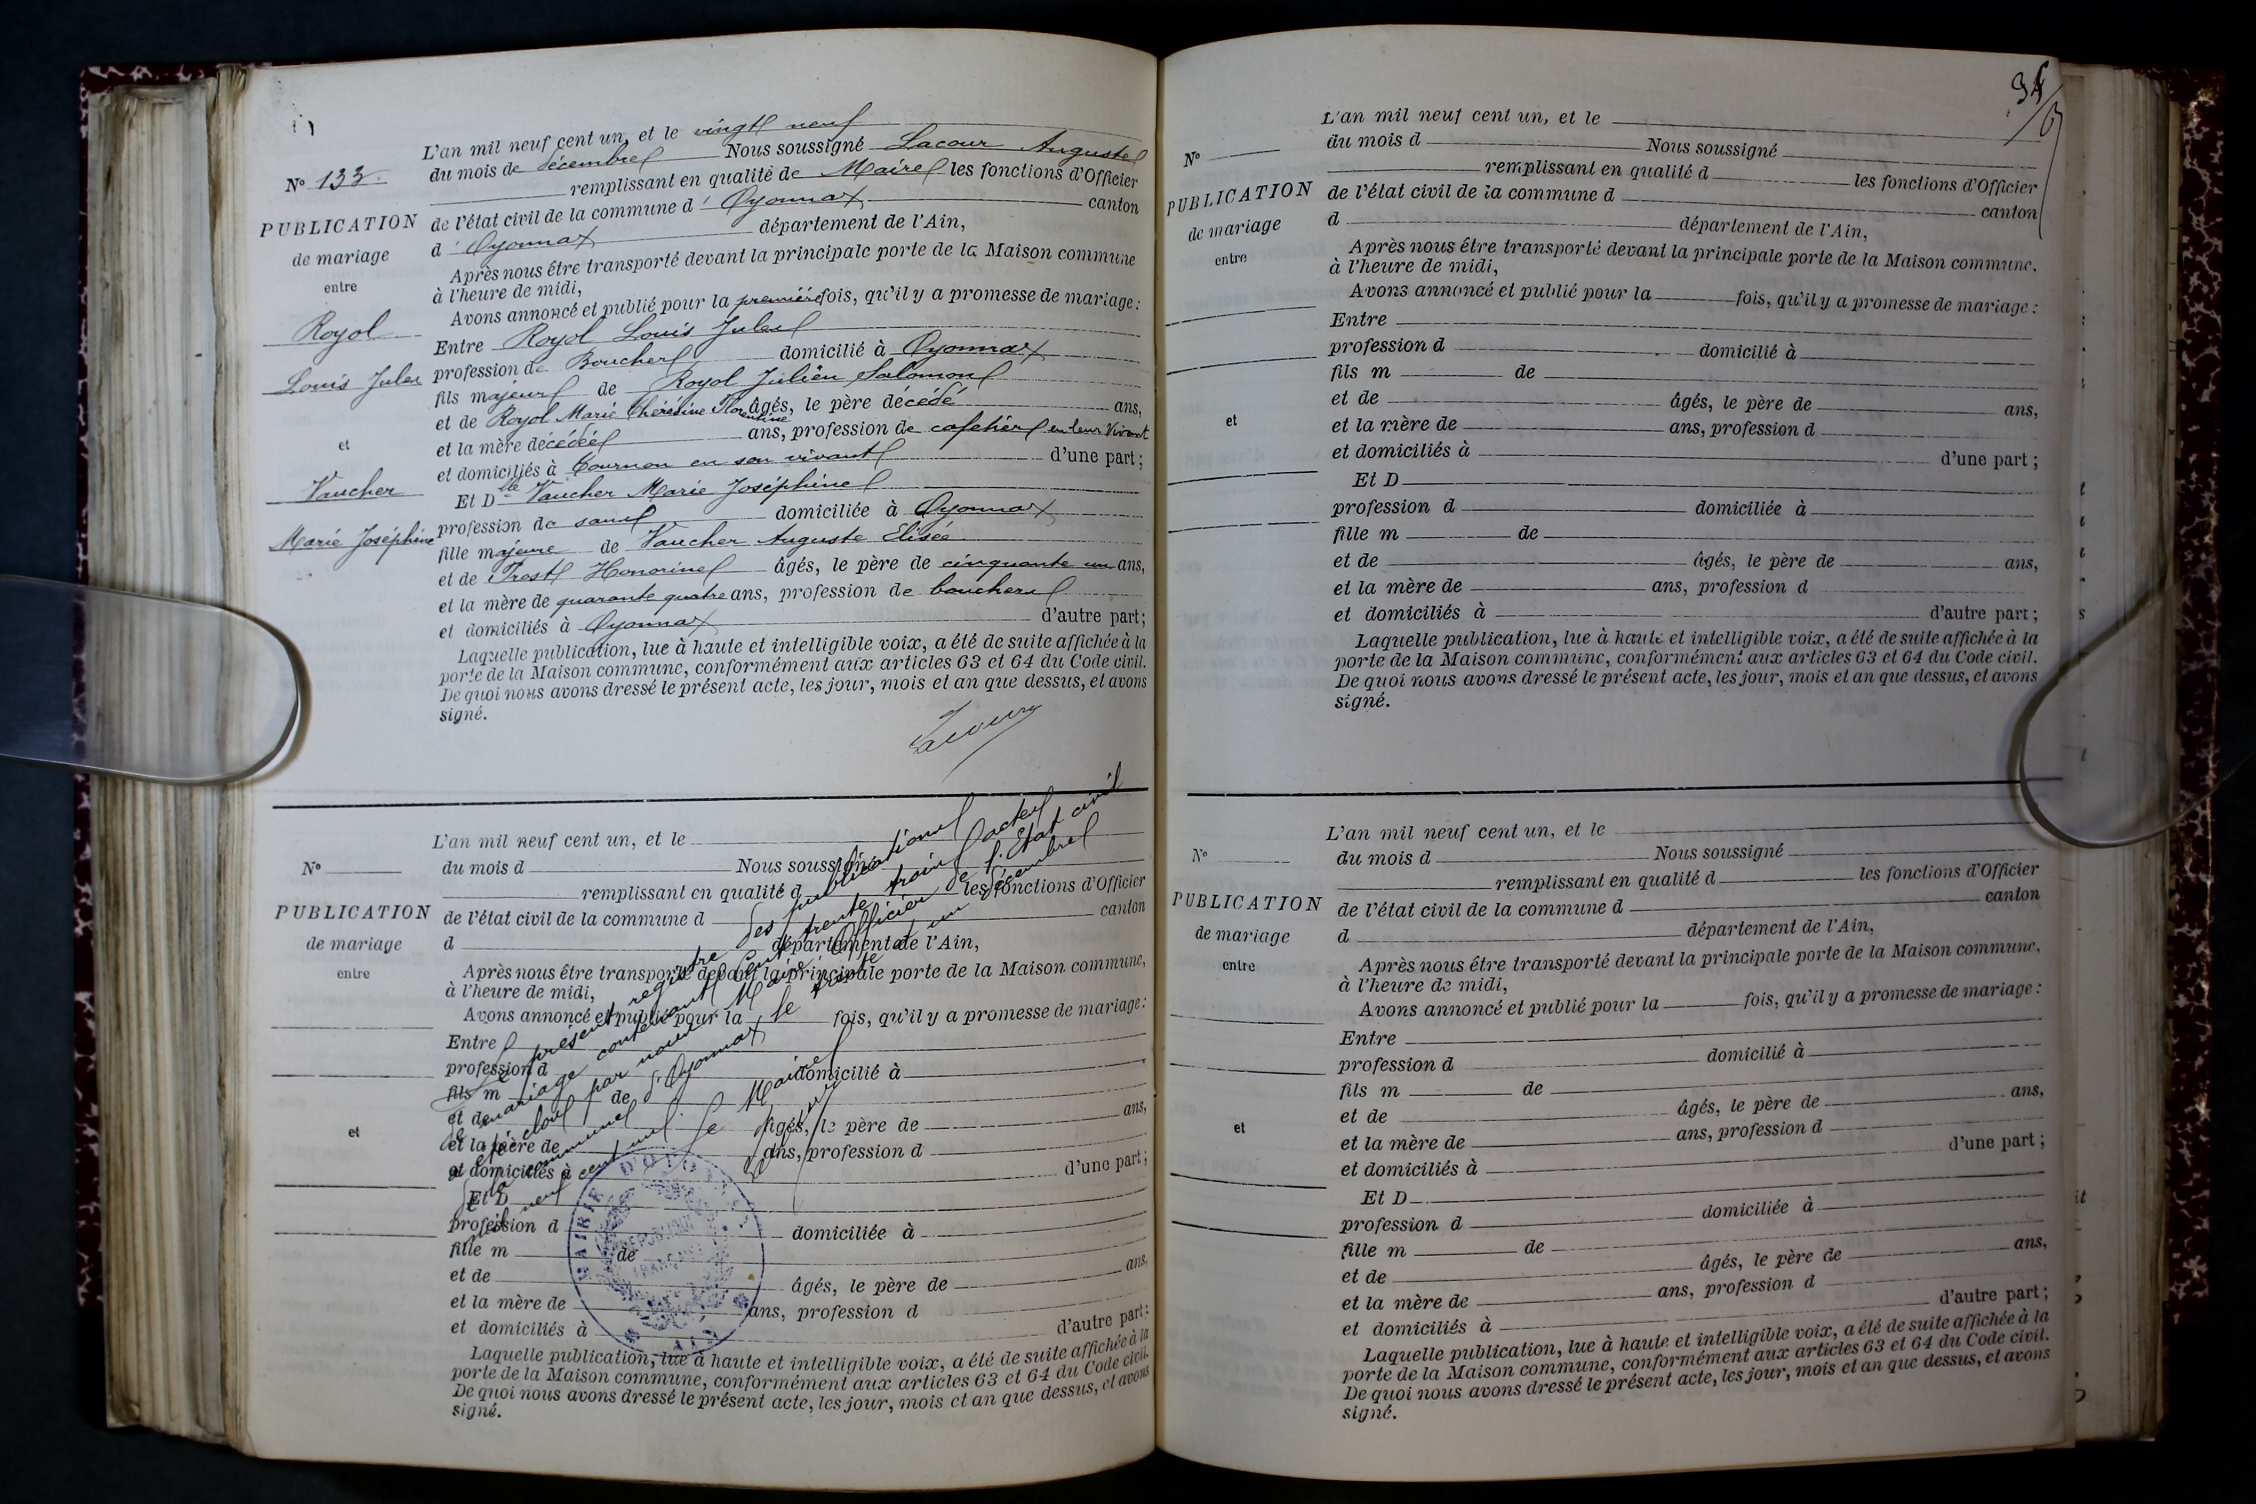 L'an mil neuf cent un, et le vingt neuf
du mois de décembre Nous soussigné Lacour Auguste
remplissant en qualité de Maire les fonctions d'Officier
de l'état civil de la commune d'Oyonnax canton
d'Oyonnax département de l'Ain,
Après nous être transporté devant la principale porte de la Maison commune
à l'heure de midi,
Avons annoncé et publié pour la première fois, qu'il y a promesse de mariage :
Entre Royol Louis Jules
profession de Boucher domicilié à Oyonnax
fils majeur de Royol Julien Salomon
et de Royol Marie Thérésine Florentine âgés, le père de décédé ans,
et la mère de décédée ans, profession de cafetier en leur vivant
et domiciliés à Tournon en son vivant d'une part ;
Et Dlle Vaucher Marie Joséphine
profession de sans domiciliée à Oyonnax
fille majeure de Vaucher Auguste Elisée
et de Prost Honorine âgés, le père de cinquante un ans,
et la mère de quarante quatre ans, profession de bouchers
et domiciliés à Oyonnax d'autre part ;
Laquelle publication, lue à haute et intelligible voix, a été de suite affichée à la
porte de la Maison commune, conformément aux articles 63 et 64 du Code civil.
De quoi nous avons dressé le présent acte, les jour, mois et an que dessus, et avons
signé.
Lacour
No 133
PUBLICATION
de mariage
entre
Royol
Louis Jules
et
Vaucher
Marie Joséphine
L'an mil neuf cent un, et le
du mois d Nous soussigné
remplissant en qualité d les fonctions d'Officier
de l'état civil de la commune d canton
d département de l'Ain,
Après nous être transporté devant la principale porte de la Maison commune,
à l'heure de midi,
Avons annoncé et publié pour la fois, qu'il y a promesse de mariage :
Entre
profession d domicilié à
fils m de
et de âgés, le père de ans,
et la mère de ans, profession d
et domiciliés à d'une part ;
Et D
profession d domiciliée à
fille m de
et de âgés, le père de ans,
et la mère de ans, profession d
et domiciliés à d'autre part ;
Laquelle publication, lue à haute et intelligible voix, a été de suite affichée à la
porte de la Maison commune, conformément aux articles 63 et 64 du Code civil.
De quoi nous avons dressé le présent acte, les jour, mois et an que dessus, et avons
signé.
No
PUBLICATION
de mariage
entre
et
Le présent registre des publications
de mariage contenant cent trente trois actes
a été clos par nous Maire Officier de l'Etat civil
de la commune d'Oyonnax le trente et un décembre
mil neuf cent un. Le Maire
MAIRIE D'OYONNAX
RÉPUBLIQUE
FRANÇAISE
AIN
L'an mil neuf cent un, et le
du mois d Nous soussigné
remplissant en qualité d les fonctions d'Officier
de l'état civil de la commune d canton
d département de l'Ain,
Après nous être transporté devant la principale porte de la Maison commune.
à l'heure de midi,
Avons annoncé et publié pour la fois, qu'il y a promesse de mariage :
Entre
profession d domicilié à
fils m de
et de âgés, le père de ans,
et la mère de ans, profession d
et domiciliés à d'une part ;
Et D
profession d domiciliée à
fille m de
et de âgés, le père de ans,
et la mère de ans, profession d
et domiciliés à d'autre part ;
Laquelle publication, lue à haute et intelligible voix, a été de suite affichée à la
porte de la Maison commune, conformément aux articles 63 et 64 du Code civil.
De quoi nous avons dressé le présent acte, les jour, mois et an que dessus, et avons
signé.
No
PUBLICATION
de mariage
entre
et
L'an mil neuf cent un, et le
du mois d Nous soussigné
remplissant en qualité d les fonctions d'Officier
de l'état civil de la commune d canton
d département de l'Ain,
Après nous être transporté devant la principale porte de la Maison commune,
à l'heure de midi,
Avons annoncé et publié pour la fois, qu'il y a promesse de mariage :
Entre
profession d domicilié à
fils m de
et de âgés, le père de ans,
et la mère de ans, profession d
et domiciliés à d'une part ;
Et D
profession d domiciliée à
fille m de
et de âgés, le père de ans,
et la mère de ans, profession d
et domiciliés à d'autre part ;
Laquelle publication, lue à haute et intelligible voix, a été de suite affichée à la
porte de la Maison commune, conformément aux articles 63 et 64 du Code civil.
De quoi nous avons dressé le présent acte, les jour, mois et an que dessus, et avons
signé.
No
PUBLICATION
de mariage
entre
et